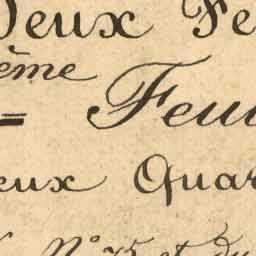 Deux Fe
ème
= Feui
eux Quar
N° 75 et du